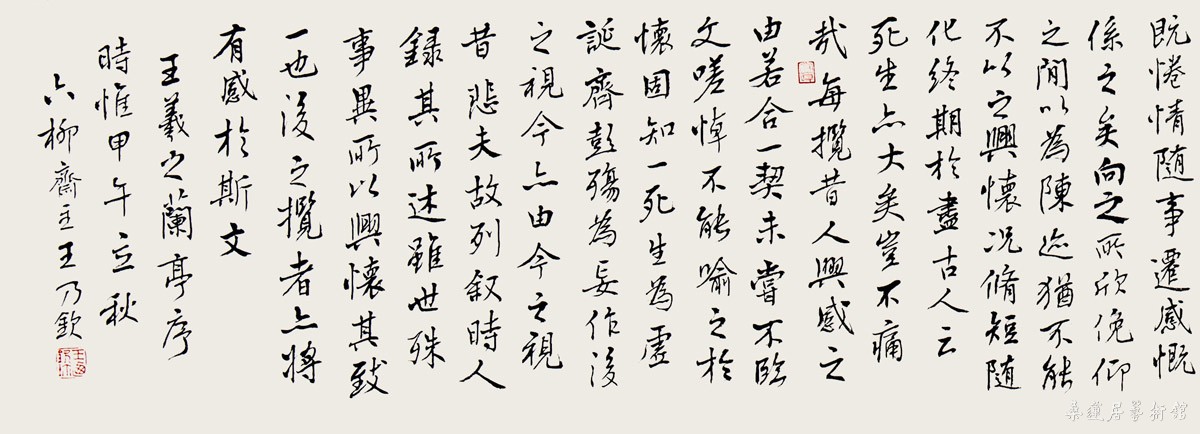 既惓情随事遷感慨
係之矣向之所欣俛仰
之間以為陳迹猶不能
不以之興懷況脩短随
化終期於盡古人云
死生亦大矣豈不痛
哉每攬昔人興感之
由若合一契未嘗不臨
文嗟悼不能喻之於
懷固知一死生為虛
誕齊彭殤為妄作後
之視今亦由今之視
昔悲夫故列叙時人
録其所述雖世殊
事異所以興懷其致
一也後之攬者亦將
有感於斯文
王羲之蘭亭序
時惟甲午立秋
六柳齋主王乃欽
桑蓮居藝術館